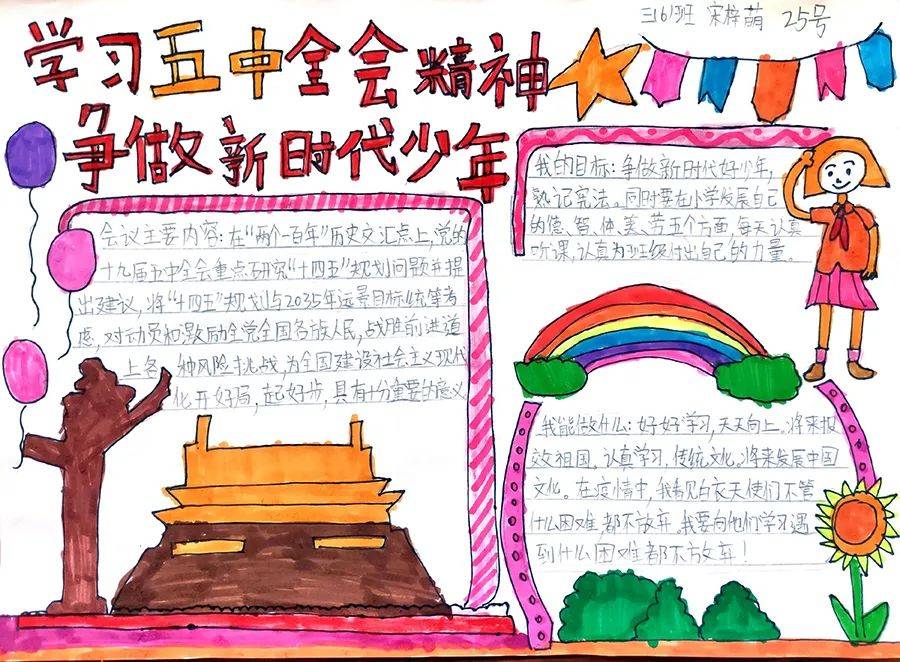 三(6)班 宋梓萌 25号
学习五中全会精神
争做新时代少年
会议主要内容:在“两个一百年”历史交汇点上,党的
十九届五中全会重点研究“十四五”规划问题并提
出建议,将“十四五”规划与2035年远景目标统筹考
虑,对动员和激励全党全国各族人民,战胜前进道
上各种风险挑战,为全国建设社会主义现代
化开好局,起好步,具有十分重要的意义
我的目标:争做新时代好少年,
熟记宪法。同时要在小学发展自己
的德、智、体、美、劳五个方面,每天认真
听课,认真为班级付出自己的力量。
我能做什么:好好学习,天天向上。将来报
效祖国。认真学习,传统文化。将来发展中国
文化。在疫情中,我看见白衣天使们不管
什么困难都不放弃。我要向他们学习遇
到什么困难都不放弃!